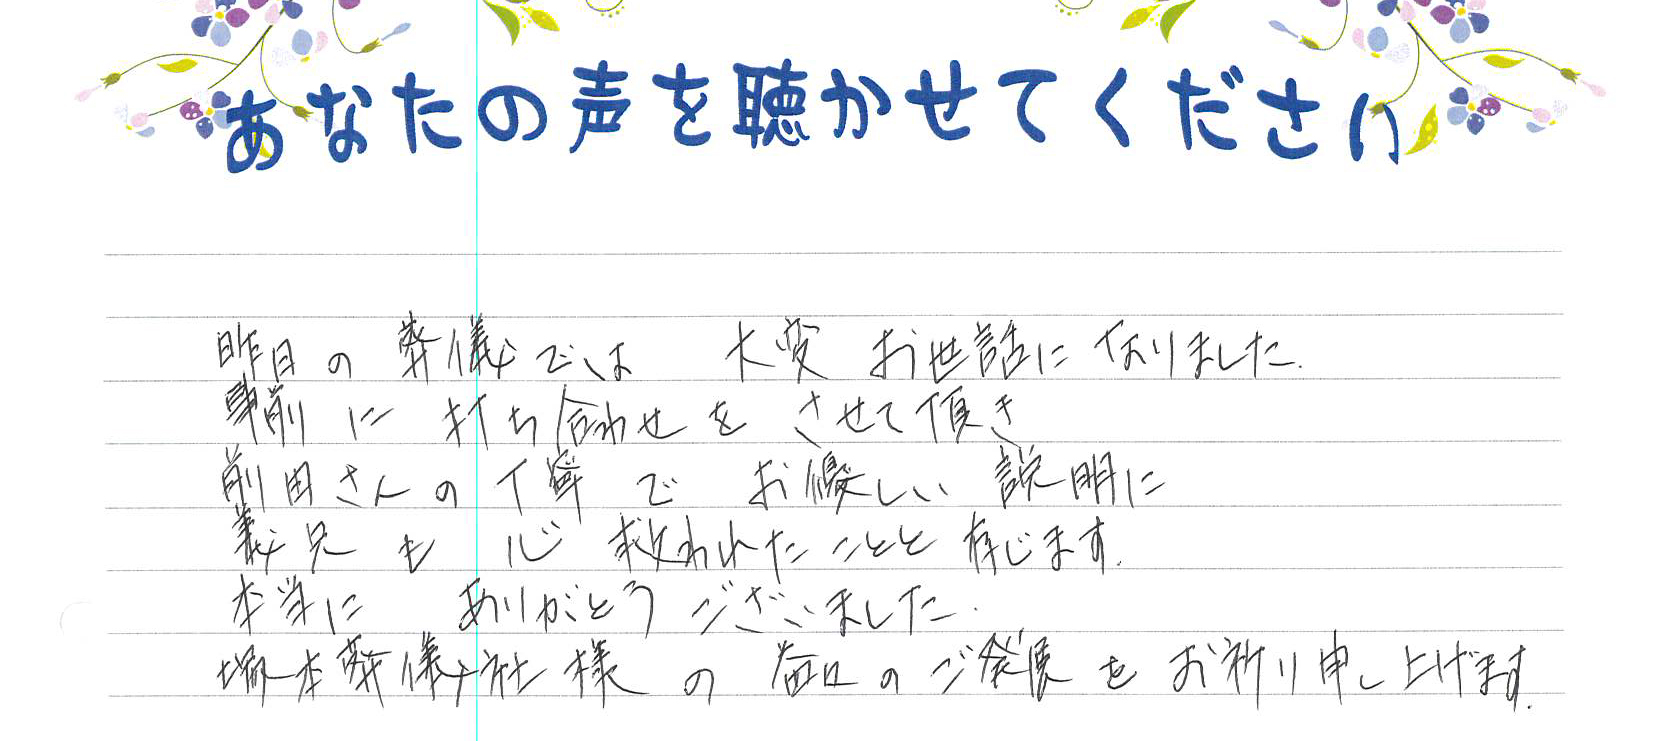 あなたの声を聴かせてください
昨日の葬儀では 大変 お世話になりました.
事前に 打ち合わせを させて頂き
前田さんの丁寧で お優しい 説明に
義兄も 心 救われたことと 存じます.
本当に ありがとう ございました.
塚本葬儀社様の 益々のご発展を お祈り申し上げます.